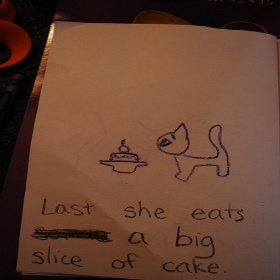 Last she eats
a big
slice of cake.